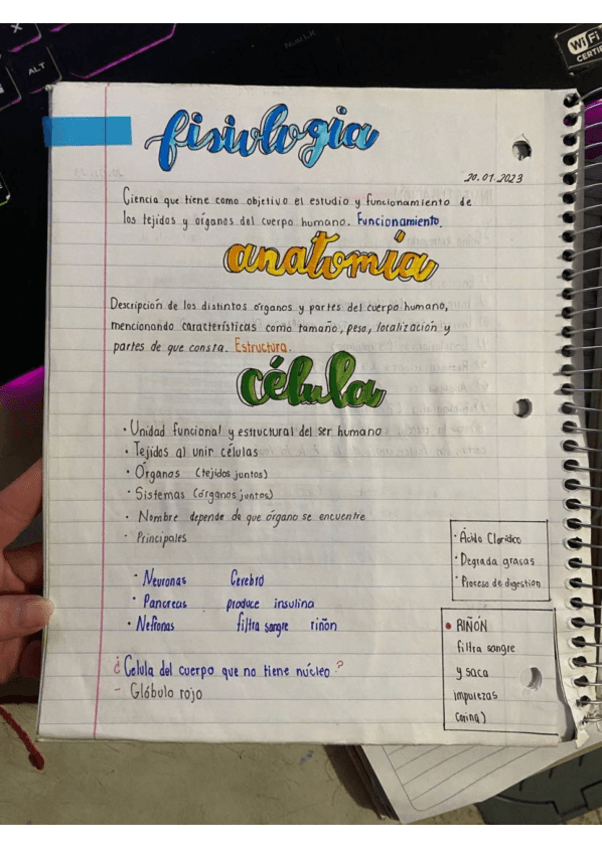 NumLK
ALT
WiFi
CERTIF
fisiología
20.01.2023
Ciencia que tiene como objetivo el estudio y funcionamiento de
los tejidos y órganos del cuerpo humano. Funcionamiento.
anatomía
Descripción de los distintos órganos y partes del cuerpo humano,
mencionando características como tamaño, peso, localización y
partes de que consta. Estructura.
célula
• Unidad funcional y estructural del ser humano
• Tejidos al unir células
• Órganos (tejidos juntos)
• Sistemas (órganos juntos)
• Nombre depende de que órgano se encuentre
- Principales
• Neuronas Cerebro
• Pancreas produce insulina
• Nefronas filtra sangre riñón
¿Celula del cuerpo que no tiene núcleo?
- Glóbulo rojo
• Ácido Clorídico
• Degrada grasas
• Proceso de digestion
• RIÑÓN
filtra sangre
y saca
impurezas
(orina)